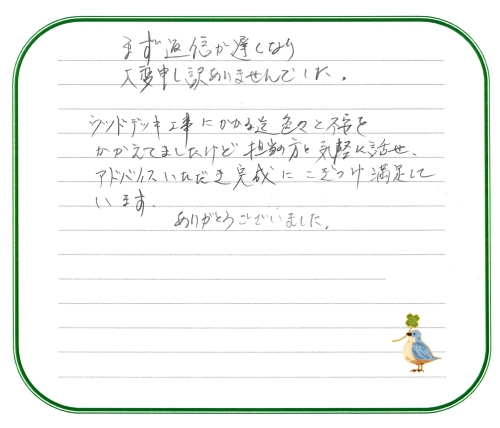 まず返信が遅くなり
大変申し訳ありませんでした。
ウッドデッキ工事にかかる迄色々と不安を
かかえてましたけど担当の方と気軽に話せ、
アドバイスいただき完成にこぎつけ満足して
います。
ありがとうございました。